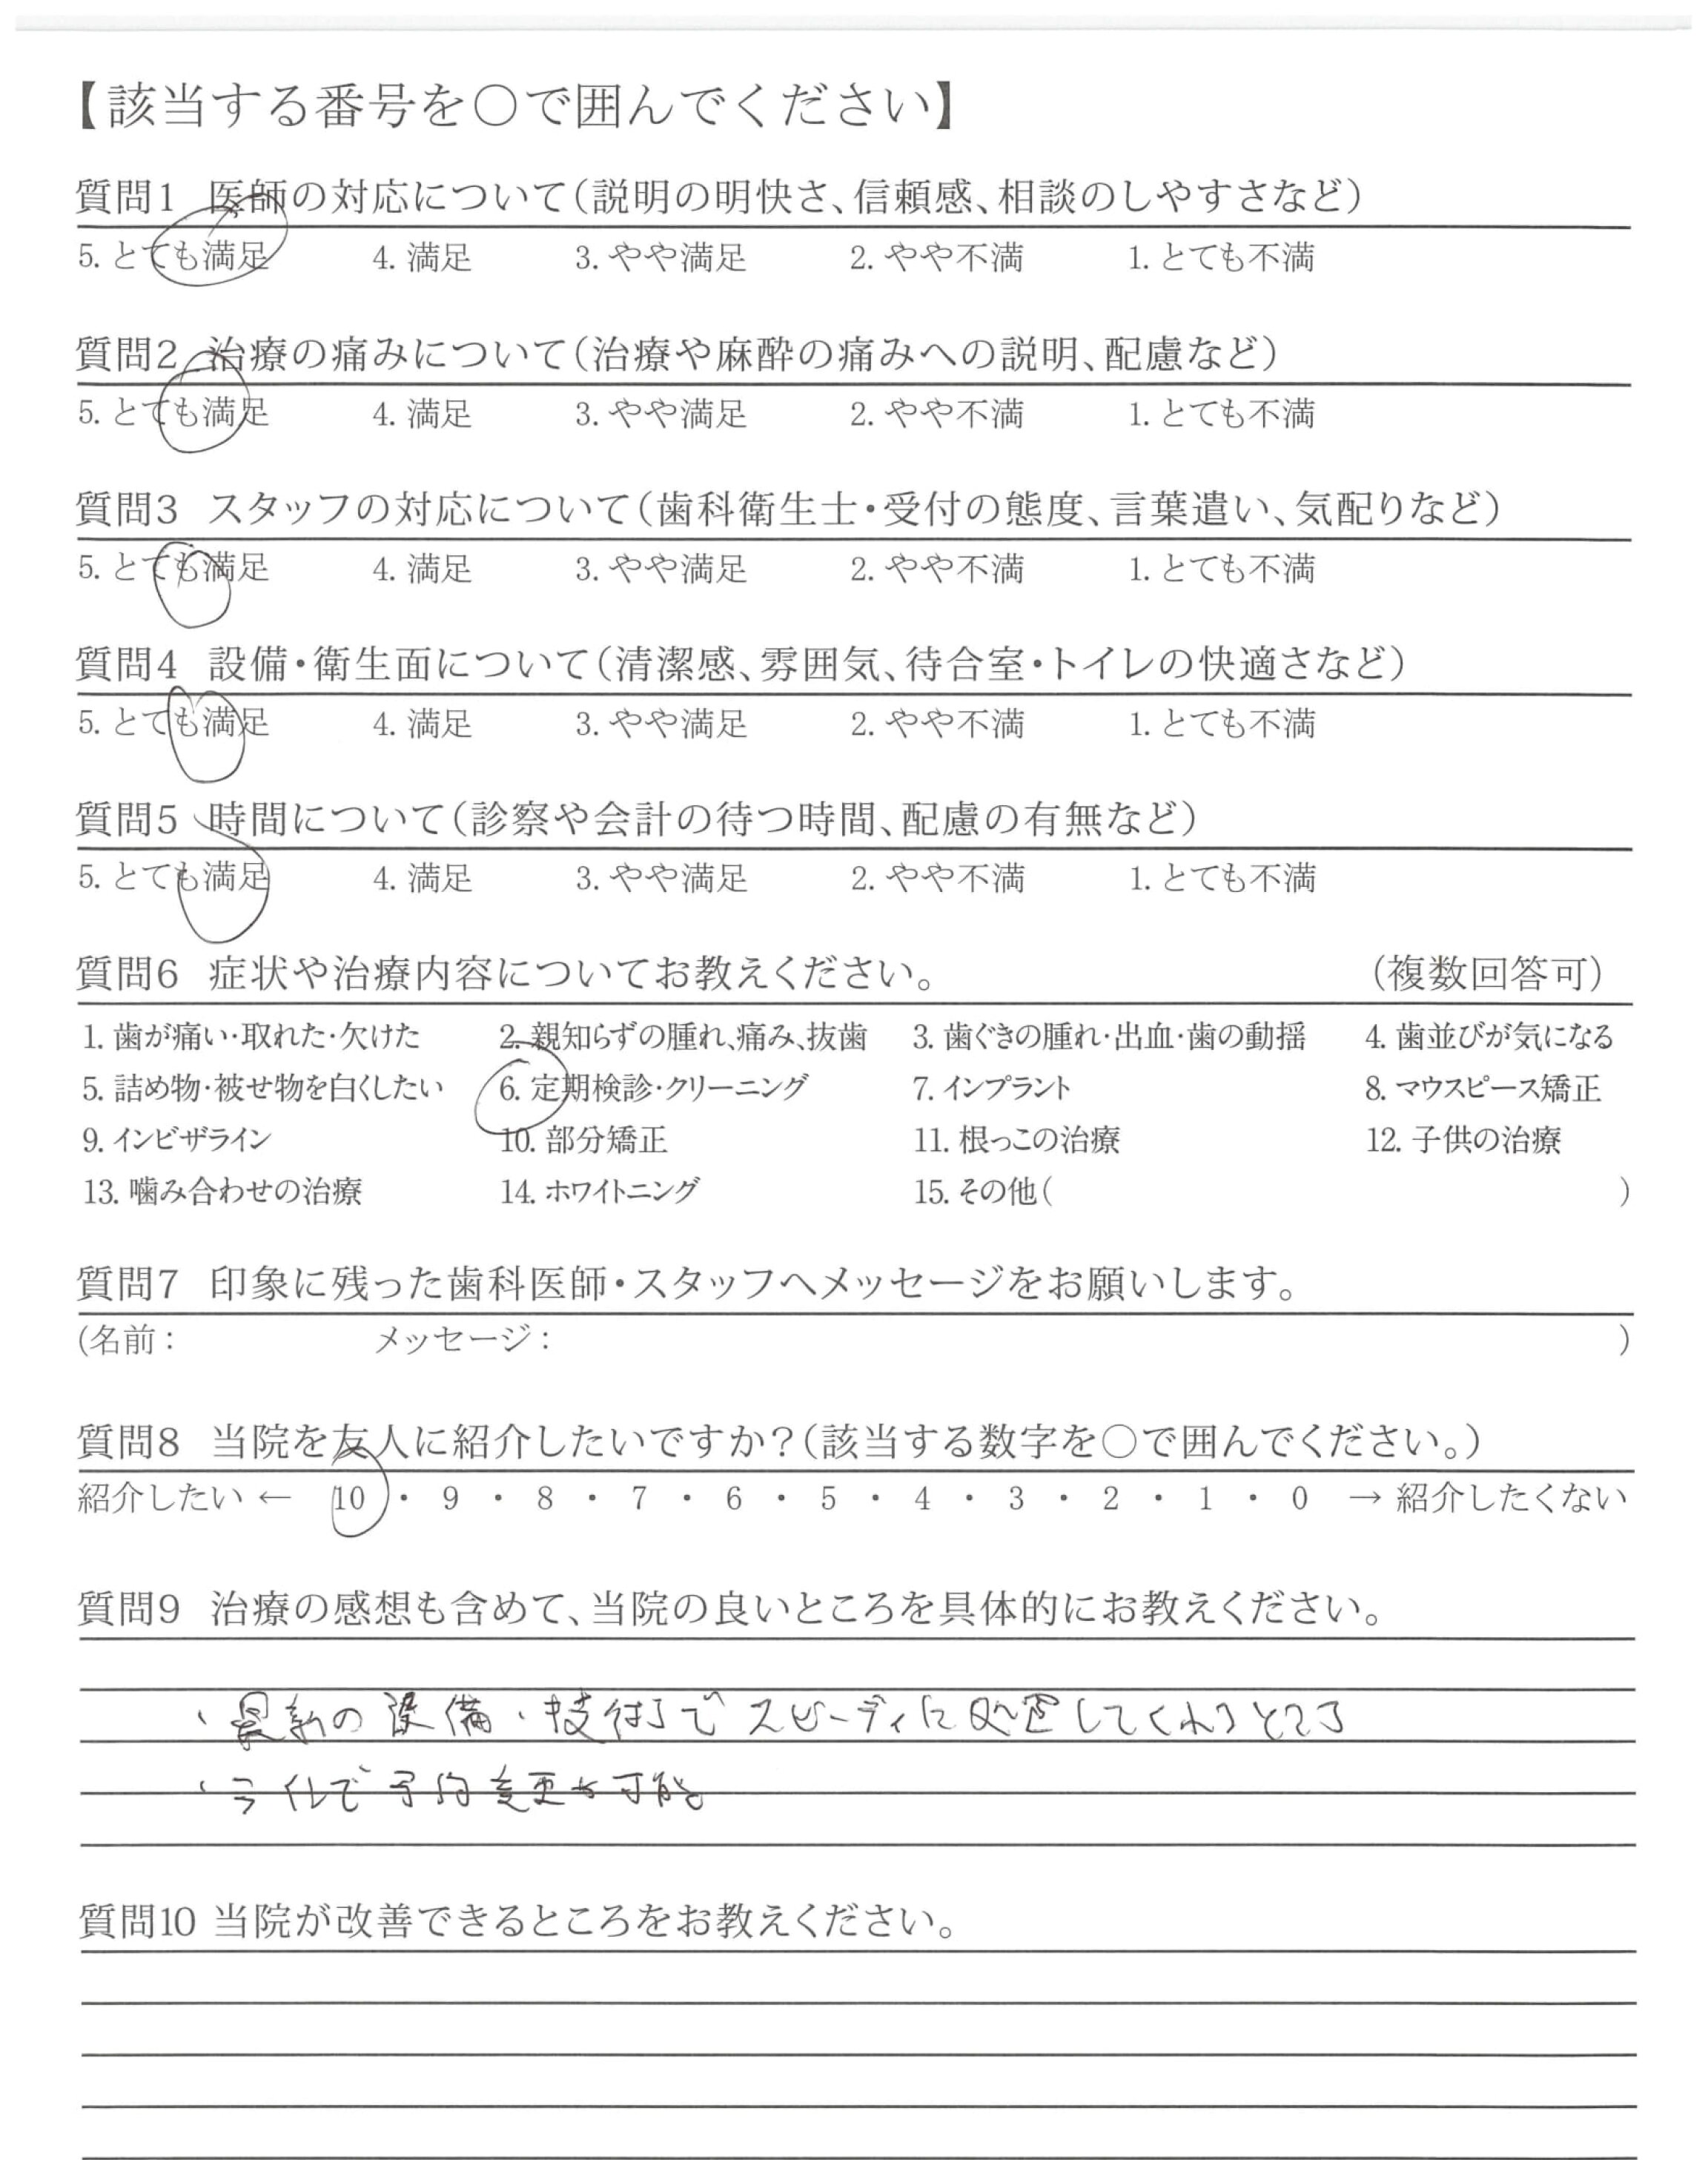 【該当する番号を○で囲んでください】
質問1 医師の対応について（説明の明快さ、信頼感、相談のしやすさなど）
5. とても満足 4. 満足 3. やや満足 2. やや不満 1. とても不満
質問2 治療の痛みについて（治療や麻酔の痛みへの説明、配慮など）
5. とても満足 4. 満足 3. やや満足 2. やや不満 1. とても不満
質問3 スタッフの対応について（歯科衛生士・受付の態度、言葉遣い、気配りなど）
5. とても満足 4. 満足 3. やや満足 2. やや不満 1. とても不満
質問4 設備・衛生面について（清潔感、雰囲気、待合室・トイレの快適さなど）
5. とても満足 4. 満足 3. やや満足 2. やや不満 1. とても不満
質問5 時間について（診察や会計の待つ時間、配慮の有無など）
5. とても満足 4. 満足 3. やや満足 2. やや不満 1. とても不満
質問6 症状や治療内容についてお教えください。 （複数回答可）
1. 歯が痛い・取れた・欠けた 2. 親知らずの腫れ、痛み、抜歯 3. 歯ぐきの腫れ・出血・歯の動揺 4. 歯並びが気になる
5. 詰め物・被せ物を白くしたい 6. 定期検診・クリーニング 7. インプラント 8. マウスピース矯正
9. インビザライン 10. 部分矯正 11. 根っこの治療 12. 子供の治療
13. 噛み合わせの治療 14. ホワイトニング 15. その他（ ）
質問7 印象に残った歯科医師・スタッフへメッセージをお願いします。
(名前： メッセージ： )
質問8 当院を友人に紹介したいですか？（該当する数字を○で囲んでください。）
紹介したい ← 10 ・ 9 ・ 8 ・ 7 ・ 6 ・ 5 ・ 4 ・ 3 ・ 2 ・ 1 ・ 0 → 紹介したくない
質問9 治療の感想も含めて、当院の良いところを具体的にお教えください。
・最新の設備・技術でスピーディに処置してくれるところ
・ラインで予約変更が可能。
質問10 当院が改善できるところをお教えください。